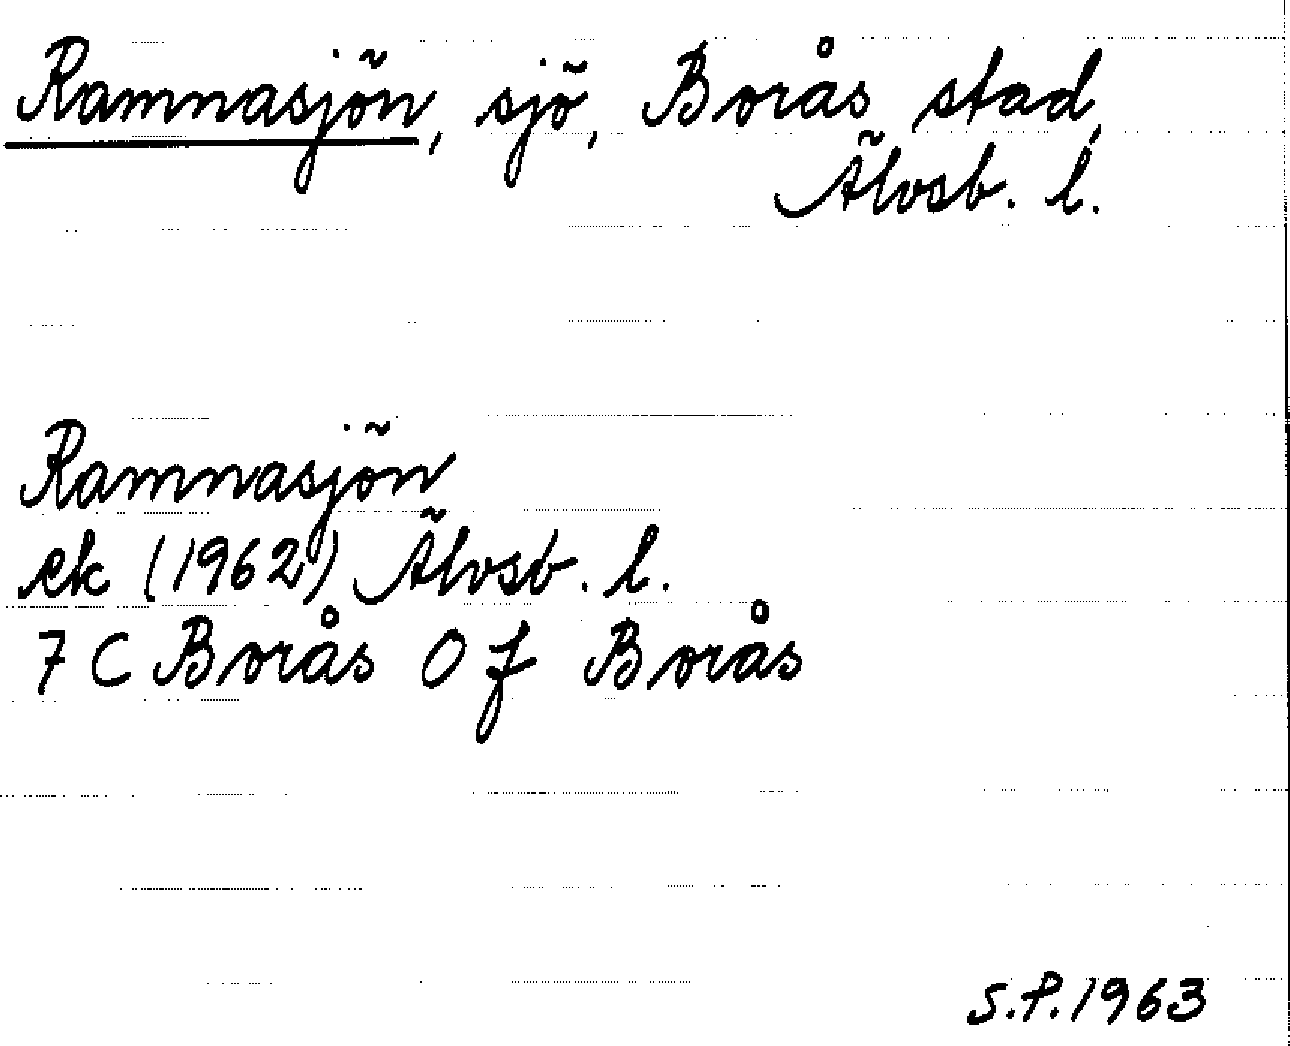 Ramnasjön, sjö, Borås stad,
Älvsb. l.
Ramnasjön
ek (1962) Älvsb. l.
7 C Borås 0 f Borås
S.P. 1963